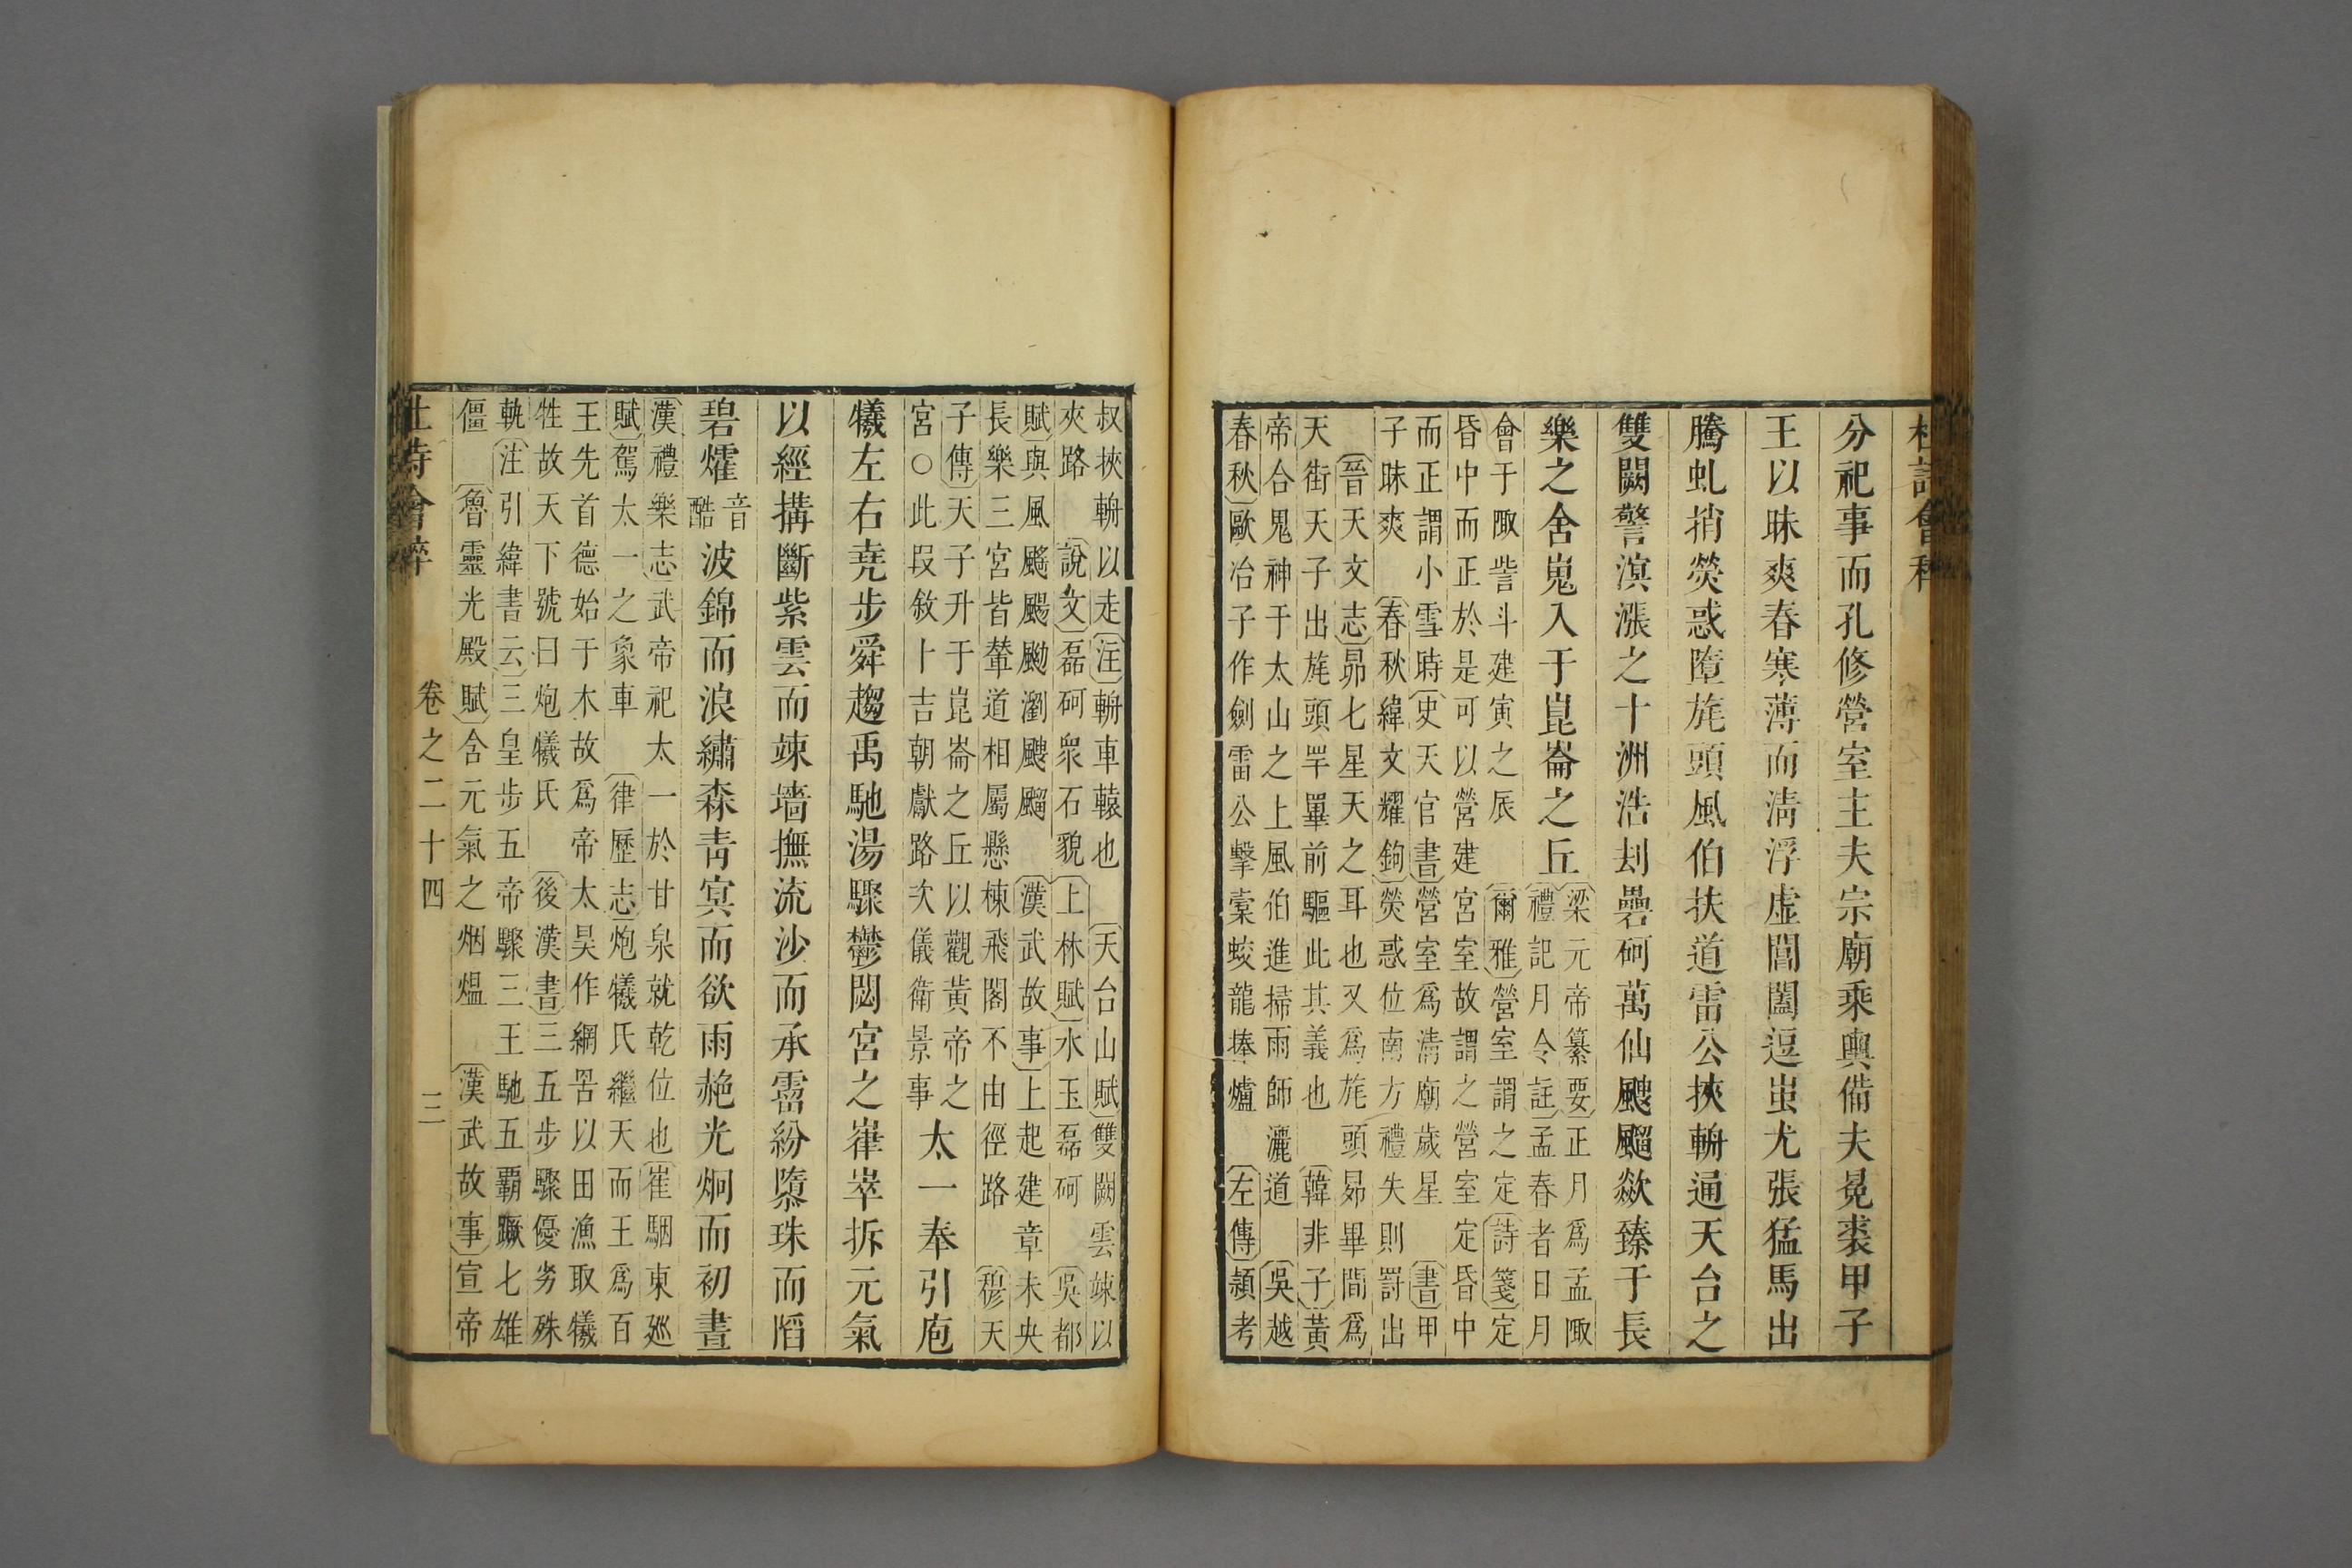 分祀事而孔修營室主夫宗廟乘輿備夫冕裘甲子
王以昧爽春寒薄而淸浮虛閶闔逗蚩尤張猛馬出
騰虬捎熒惑墮旄頭風伯扶道雷公挾輈通天台之
雙闕警溟漲之十洲浩刦礨砢萬仙颼飀歘臻于長
樂之舍嵬入于崑崙之丘
梁元帝纂要正月爲孟陬
禮記月令註孟春者日月
會于陬訾斗建寅之辰 爾雅營室謂之定詩箋定
昏中而正於是可以營建宮室故謂之營室定昏中
而正謂小雪時史天官書營室爲淸廟歲星 書甲
子昧爽 春秋緯文耀鉤熒惑位南方禮失則罰出
晉天文志昴七星天之耳也又爲旄頭昴畢間爲
天街天子出旄頭罕畢前驅此其義也 韓非子黃
帝合鬼神于太山之上風伯進掃雨師灑道 吳越
春秋歐冶子作劍雷公擊橐蛟龍捧爐 左傳潁考
叔挾輈以走注輈車轅也 天台山賦雙闕雲竦以
夾路 說文磊砢衆石貌 上林賦水玉磊砢 吳都
賦與風飊颺颲瀏颼飀 漢武故事上起建章未央
長樂三宮皆輦道相屬懸棟飛閣不由徑路 穆天
子傳天子升于崑崙之丘以觀黃帝之
宮○此段敘卜吉朝獻路次儀衛景事
太一奉引庖
犧左右堯步舜趨禹馳湯驟鬱閟宮之嵂崒拆元氣
以經搆斷紫雲而竦墻撫流沙而承霤紛隳珠而陷
碧㸌音酷波錦而浪繡森靑㝠而欲雨赩光炯而初晝
漢禮樂志武帝祀太一於甘泉就乾位也崔駰東廵
賦駕太一之象車 律歷志炮犧氏繼天而王爲百
王先首德始于木故爲帝太昊作網罟以田漁取犧
牲故天下號曰炮犧氏 後漢書三五步驟優劣殊
軌注引緯書云三皇步五帝驟三王馳五覇蹶七雄
僵 魯靈光殿賦含元氣之烟熅 漢武故事宣帝
杜詩會稡
卷之二十四
三